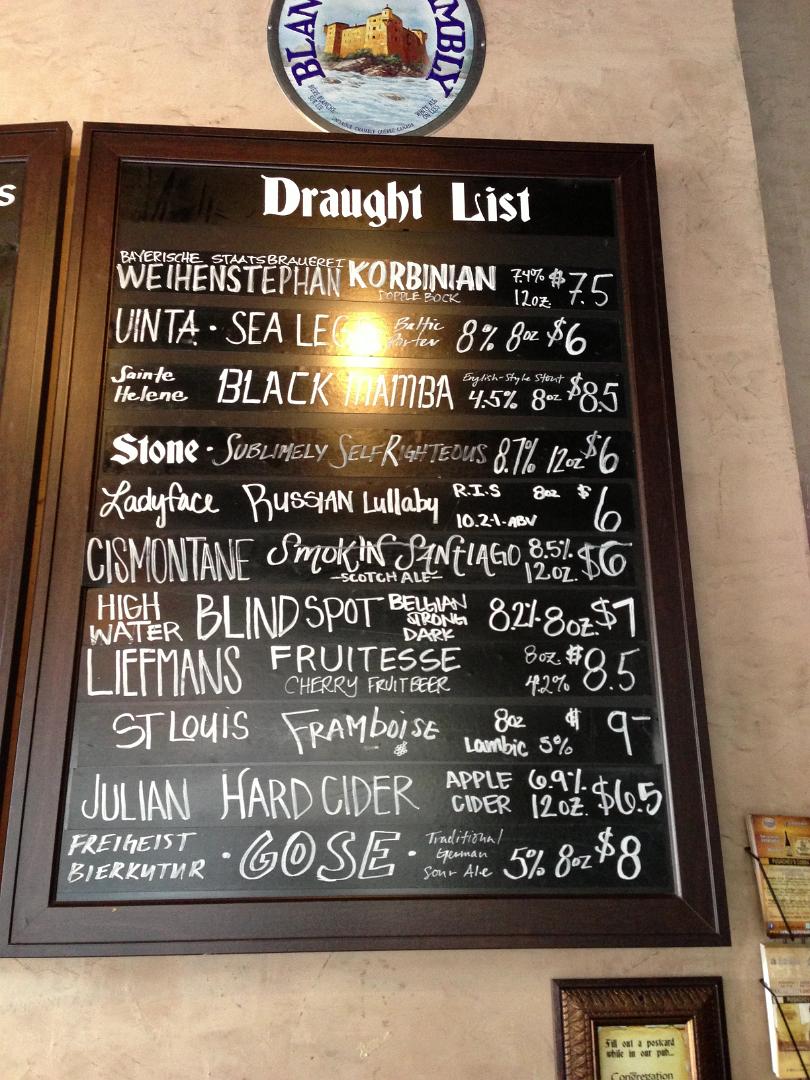 BLAN MBLY
BIERE BLANCHE SUR LIE WHITE ALE ON LEES
S
Draught List
BAYERISCHE STAATSBRAUEREI
WEIHENSTEPHAN KORBINIAN 7.4% $7.5
DOPPLE BOCK 12OZ.
UINTA · SEA LEGS Baltic Porter 8% 8oz $6
Sainte Helene BLACK MAMBA English-Style Stout 4.5% 8oz $8.5
Stone · SUBLIMELY SELF RIGHTEOUS 8.7% 12oz $6
Ladyface RUSSIAN Lullaby R.I.S 8oz $6
10.2% ABV
CISMONTANE SMOKIN SANTIAGO 8.5% $6
-SCOTCH ALE- 12OZ.
HIGH WATER BLIND SPOT BELGIAN STRONG DARK 8.2% 8OZ. $7
LIEFMANS FRUITESSE 8oz. $8.5
CHERRY FRUIT BEER 4.2%
ST LOUIS FRAMBOISE 8oz $9-
Lambic 5%
JULIAN HARD CIDER APPLE CIDER 6.9% 12OZ. $6.5
FREIGEIST BIERKUTUR · GOSE · Traditional German Sour Ale 5% 8oz $8
Fill out a postcard
while in our pub...
Congregation